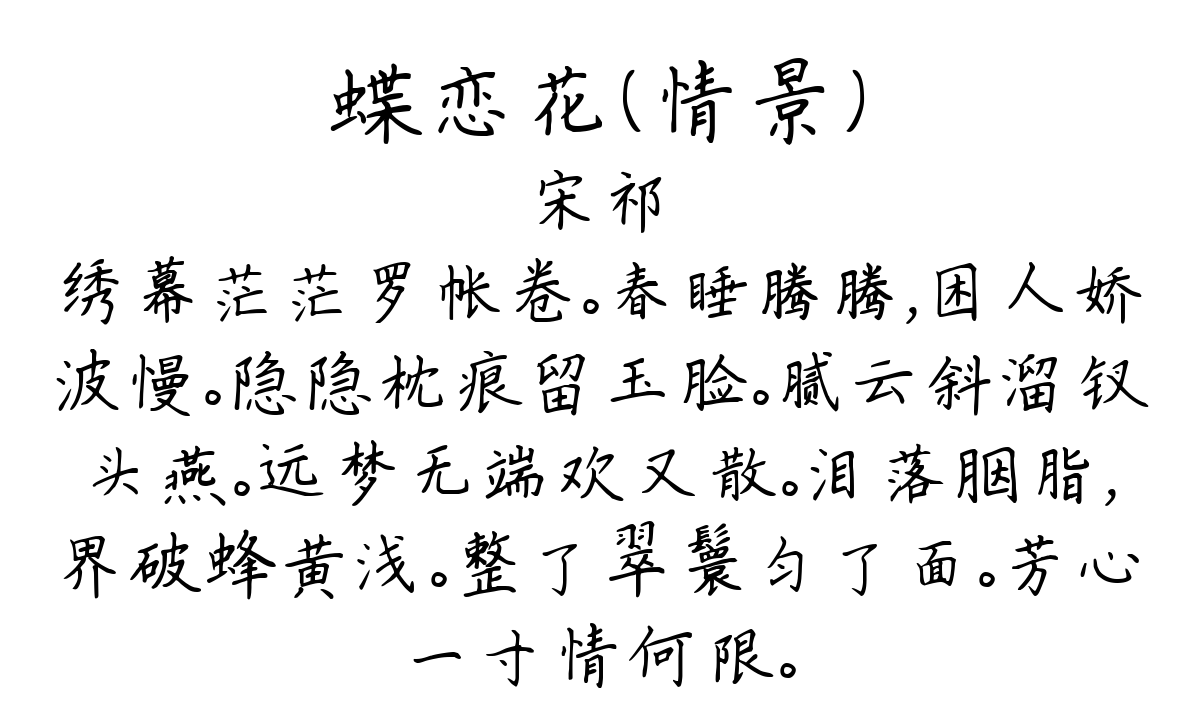 蝶恋花(情景)
宋祁
绣幕茫茫罗帐卷。春睡腾腾,困人娇
波慢。隐隐枕痕留玉脸。腻云斜溜钗
头燕。远梦无端欢又散。泪落胭脂,
界破蜂黄浅。整了翠鬟匀了面。芳心
一寸情何限。